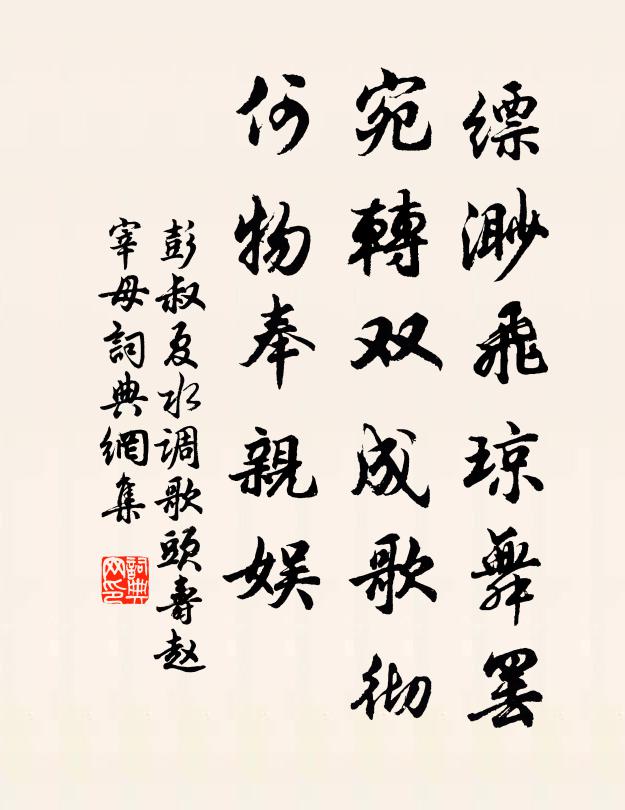 缥渺飛琼舞罢
宛轉双成歌彻
何物奉親娱
彭叔夏水调歌頭壽赵
宰母詞典網集
詞典网印